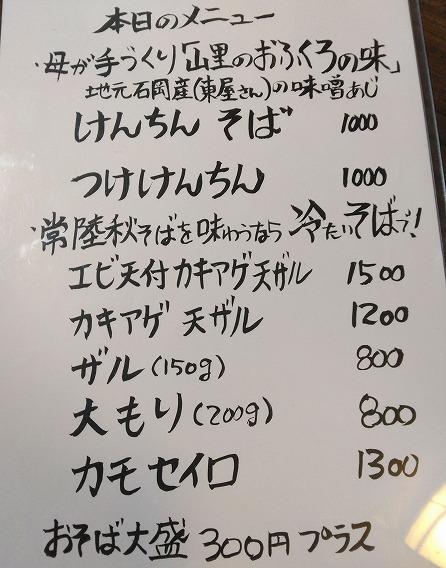 本日のメニュー
・母が手づくり「山里のおふくろの味」
地元石岡産(東屋さん)の味噌あじ
けんちんそば 1000
つけけんちん 1000
・常陸秋そばを味わうなら冷たいそばで!
エビ天付カキアゲ天ザル 1500
カキアゲ 天ザル 1200
ザル(150g) 800
大もり(200g) 800
カモセイロ 1300
おそば大盛 300円プラス